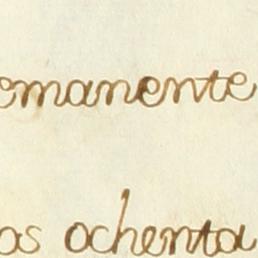 emanente
os ochenta